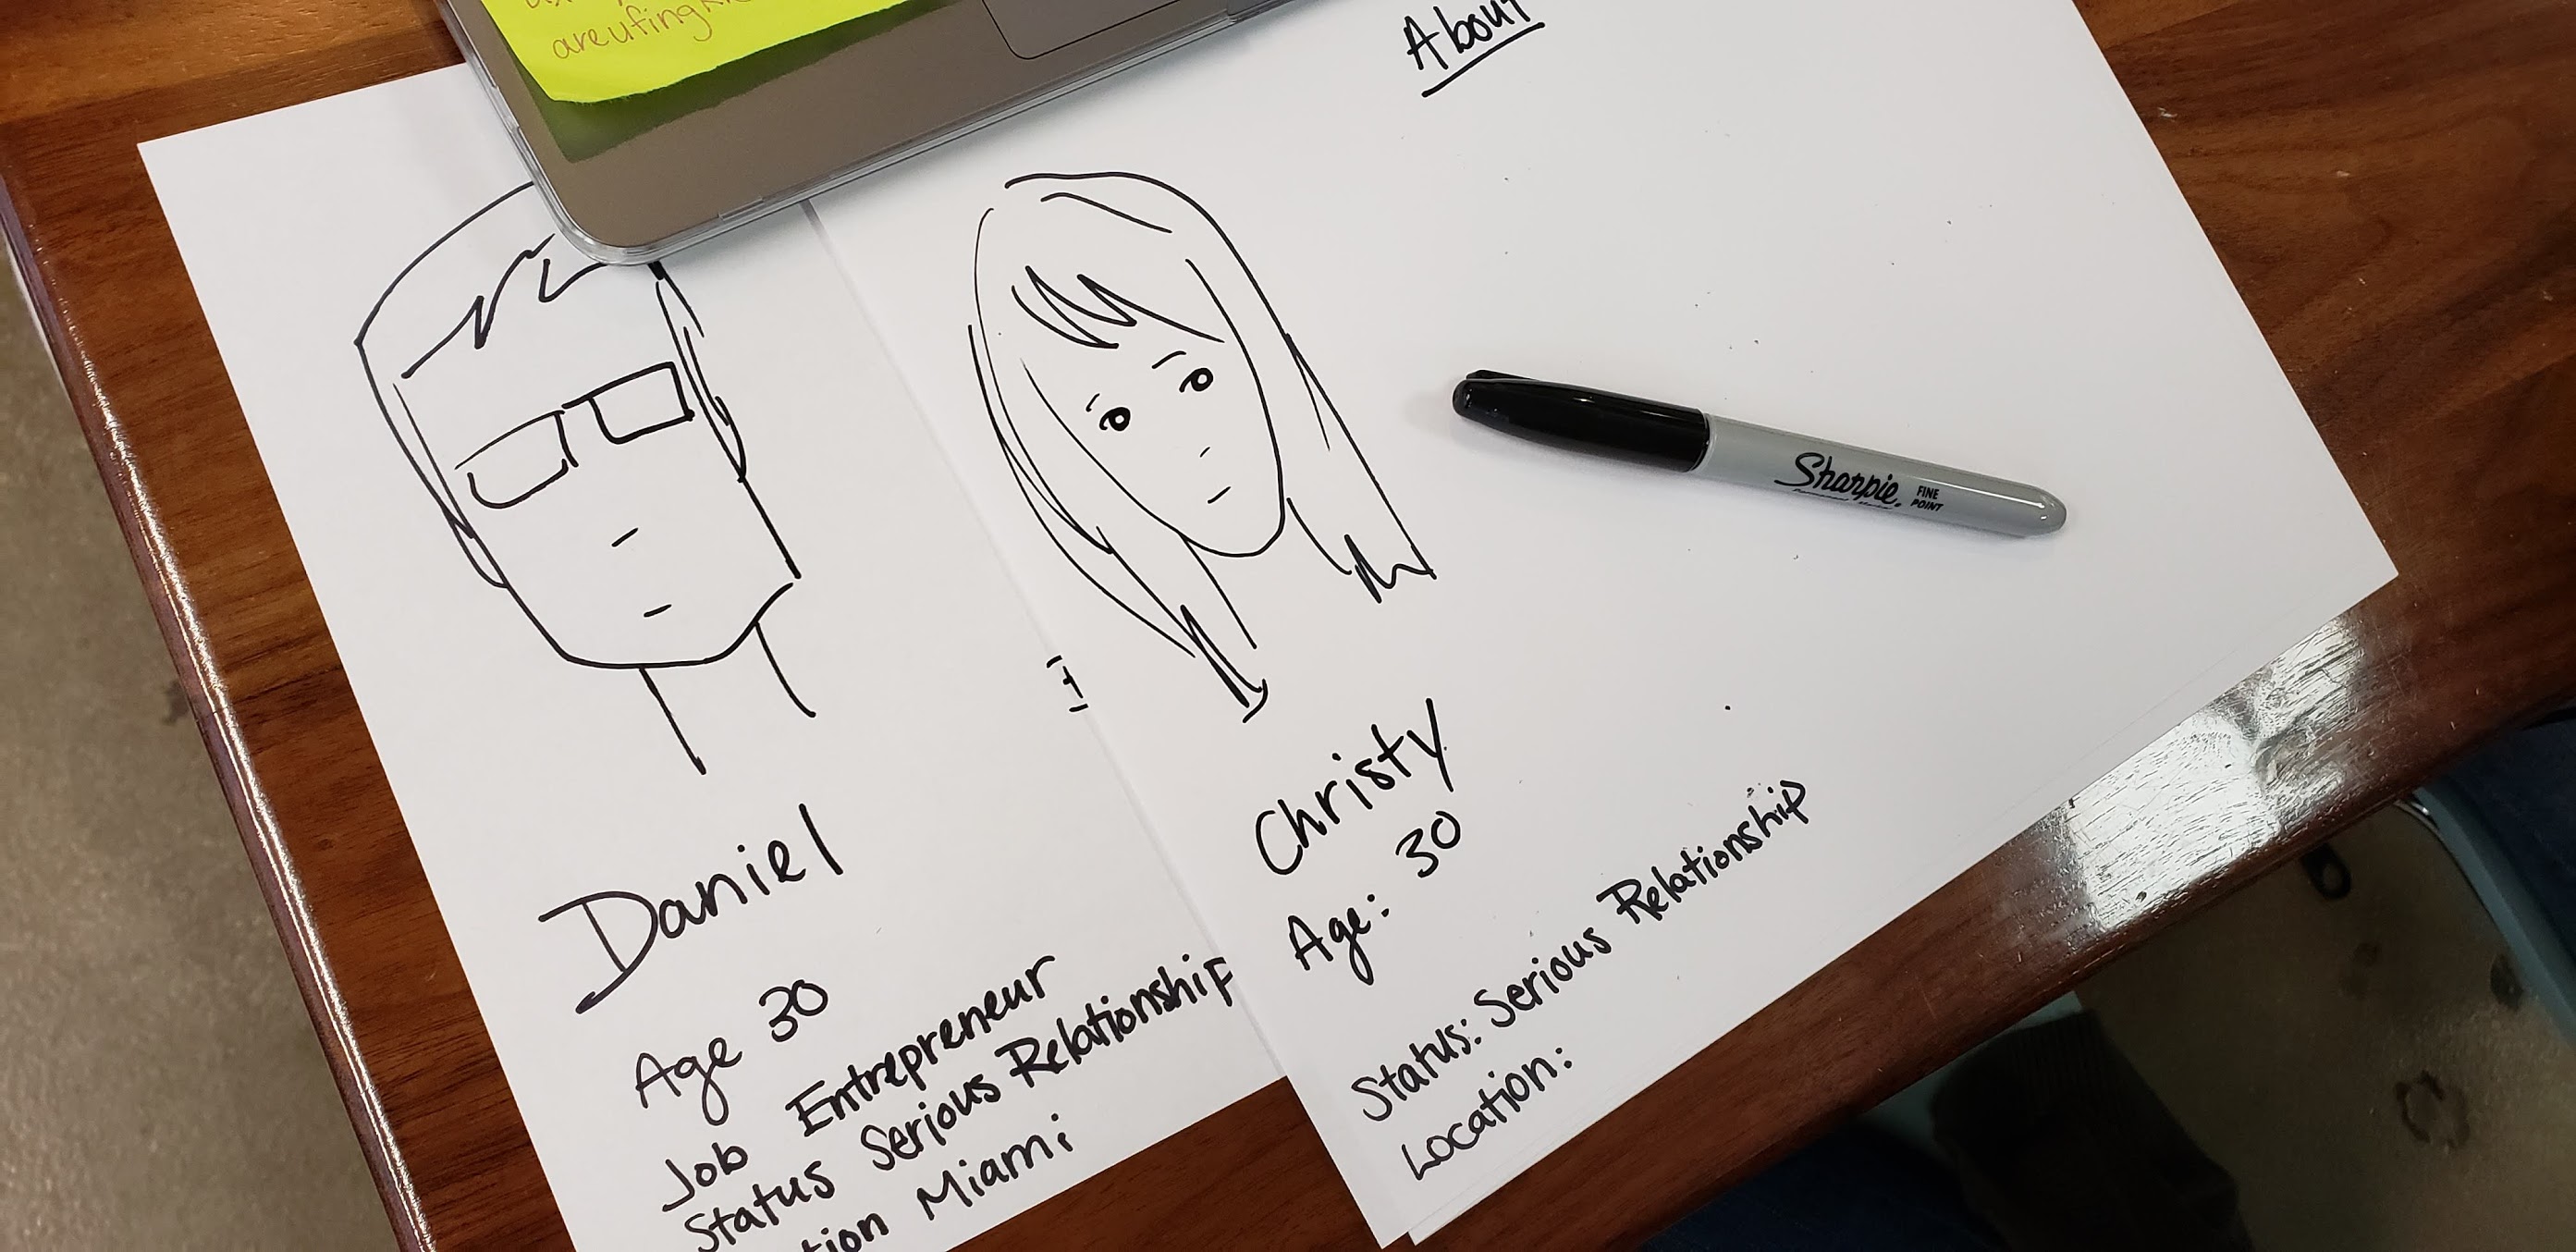 About
Daniel
Age 30
Job Entrepreneur
Status Serious Relationship
tion Miami
Christy
Age: 30
Status: Serious Relationship
Location:
Sharpie
FINE
POINT